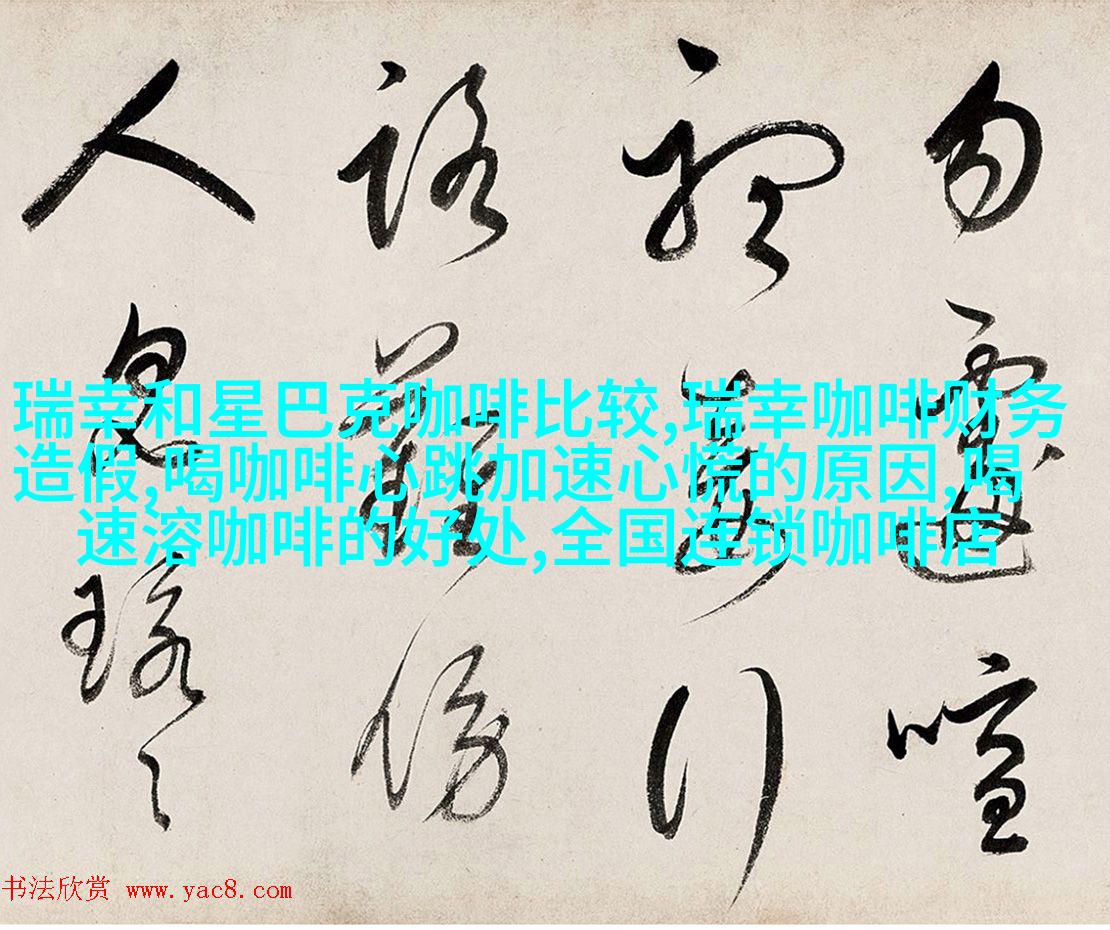 瑞幸和星巴克咖啡比较,瑞幸咖啡财务
造假,喝咖啡心跳加速心慌的原因,喝
速溶咖啡的好处,全国连锁咖啡店
勿遽喧
行
路難傍
人
书法欣赏 www.yac8.com